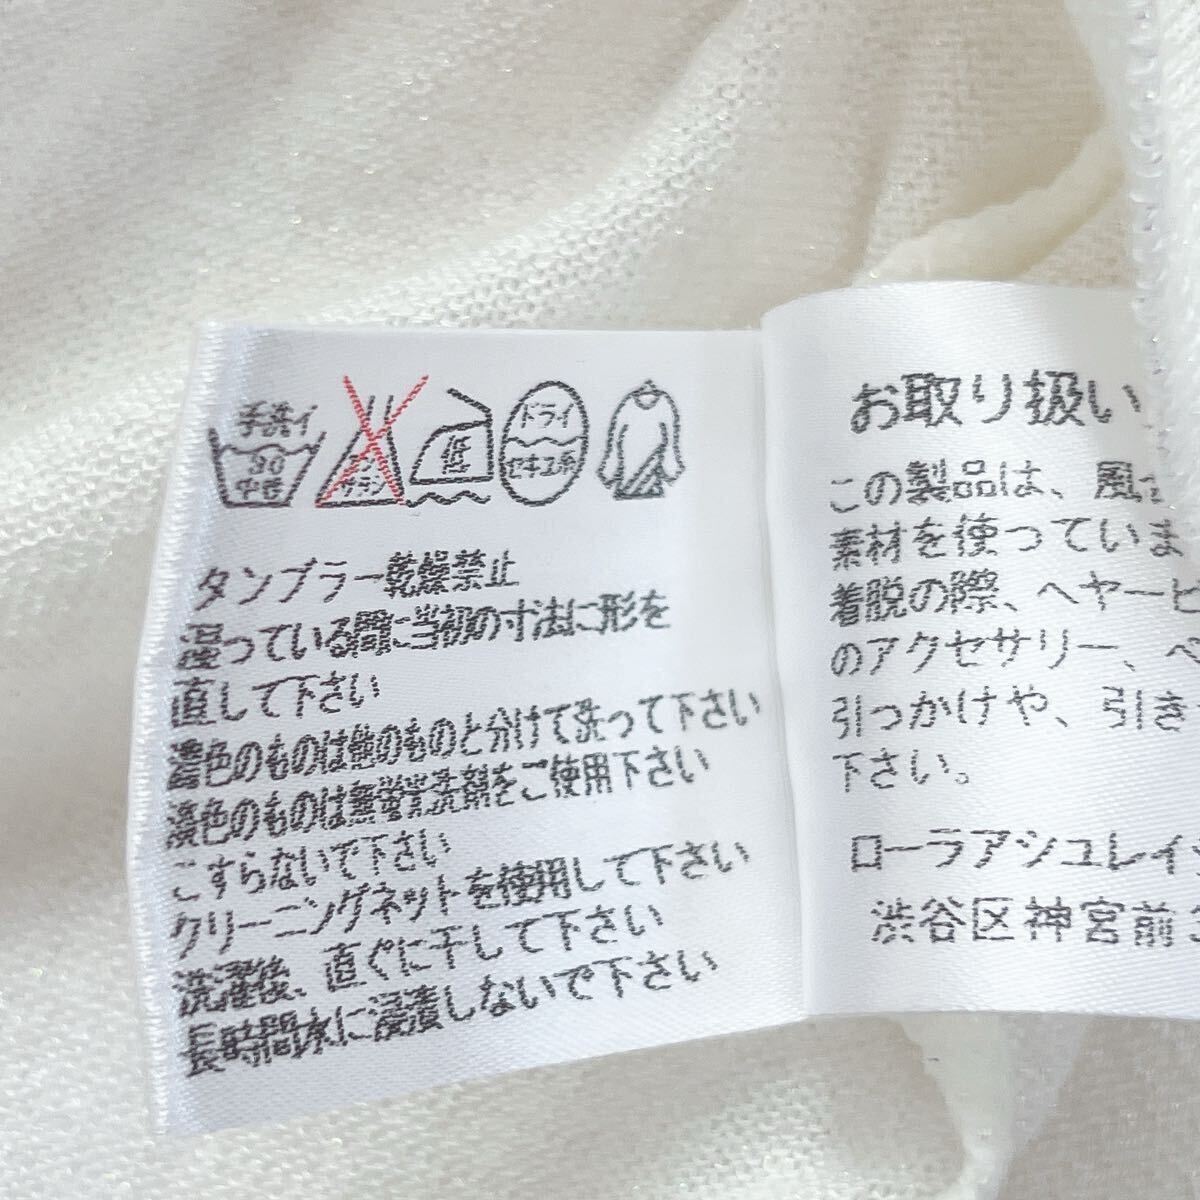 手洗イ
30
中性
エンソ
サラシ
低
ドライ
セキユ系
タンブラー乾燥禁止
湿っている間に当初の寸法に形を
直して下さい
濃色のものは他のものと分けて洗って下さい
淡色のものは無蛍光洗剤をご使用下さい
こすらないで下さい
クリーニングネットを使用して下さい
洗濯後、直ぐに干して下さい
長時間水に浸漬しないで下さい
お取り扱い
この製品は、風
素材を使っていま
着脱の際、ヘヤーピ
のアクセサリー、ベ
引っかけや、引き
下さい。
ローラアシュレイ
渋谷区神宮前